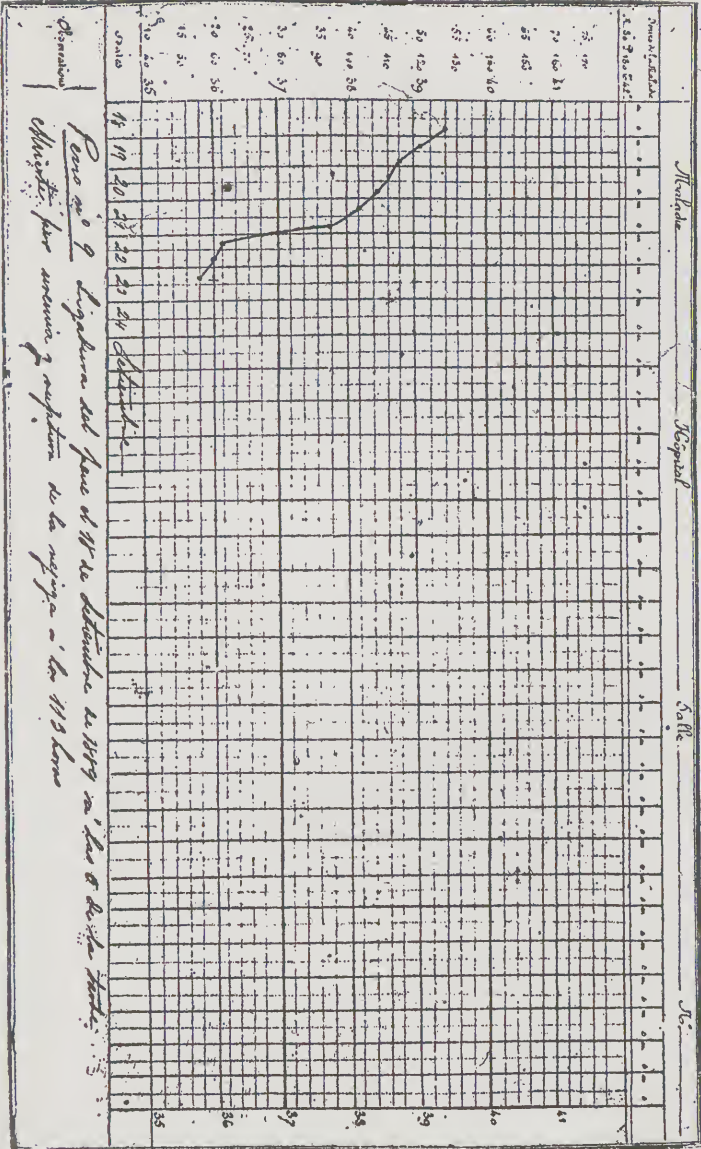 Maladie Hôpital Salle No.
75 170
70 160 41
65 150
60 140 40
55 130
50 120 39
45 110
40 100 38
35 90
30 80 37
20 60 36
15 50
10 40 35
18 19 20 21 22 23 24 Setiembre
41
40
39
38
37
36
35
Observations
Perro nº 9 Ligadura del pene el 18 de Setiembre de 1889 á las 6 de la tarde
Murió por uremia y ruptura de la vejiga á las 113 horas